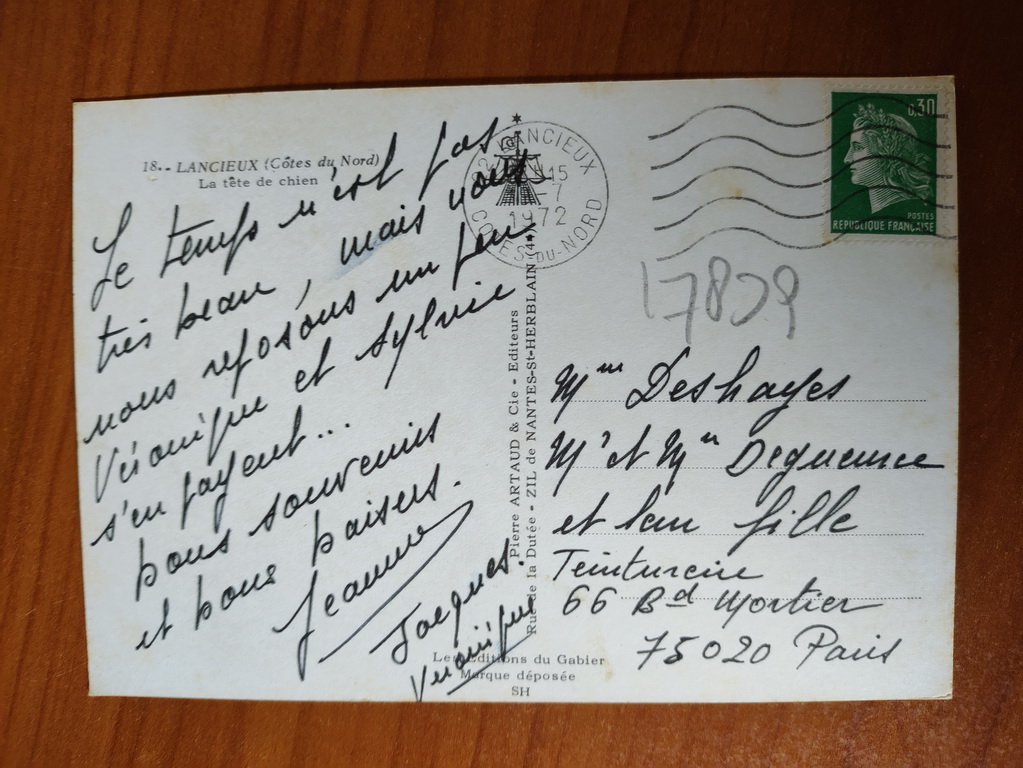 18.- LANCIEUX (Côtes du Nord)
La tête de chien
Le temps n'est pas
très beau, mais nous
nous reposons un peu
Véronique et Sylvie
s'en payent...
bons souvenirs
et bons baisers.
Jeanne
Jacques.
Véronique
Pierre ARTAUD & Cie - Editeurs
Rue de la Dutée - ZIL de NANTES-St-HERBLAIN (44)
Les Editions du Gabier
Marque déposée
SH
22 LANCIEUX
15
-7
1972
COTES-DU-NORD
0,30
POSTES
REPUBLIQUE FRANÇAISE
17839
Mme Deshayes
Mr et Mme
et leur fille
Teinturerie
66 Bd Mortier
75020 Paris